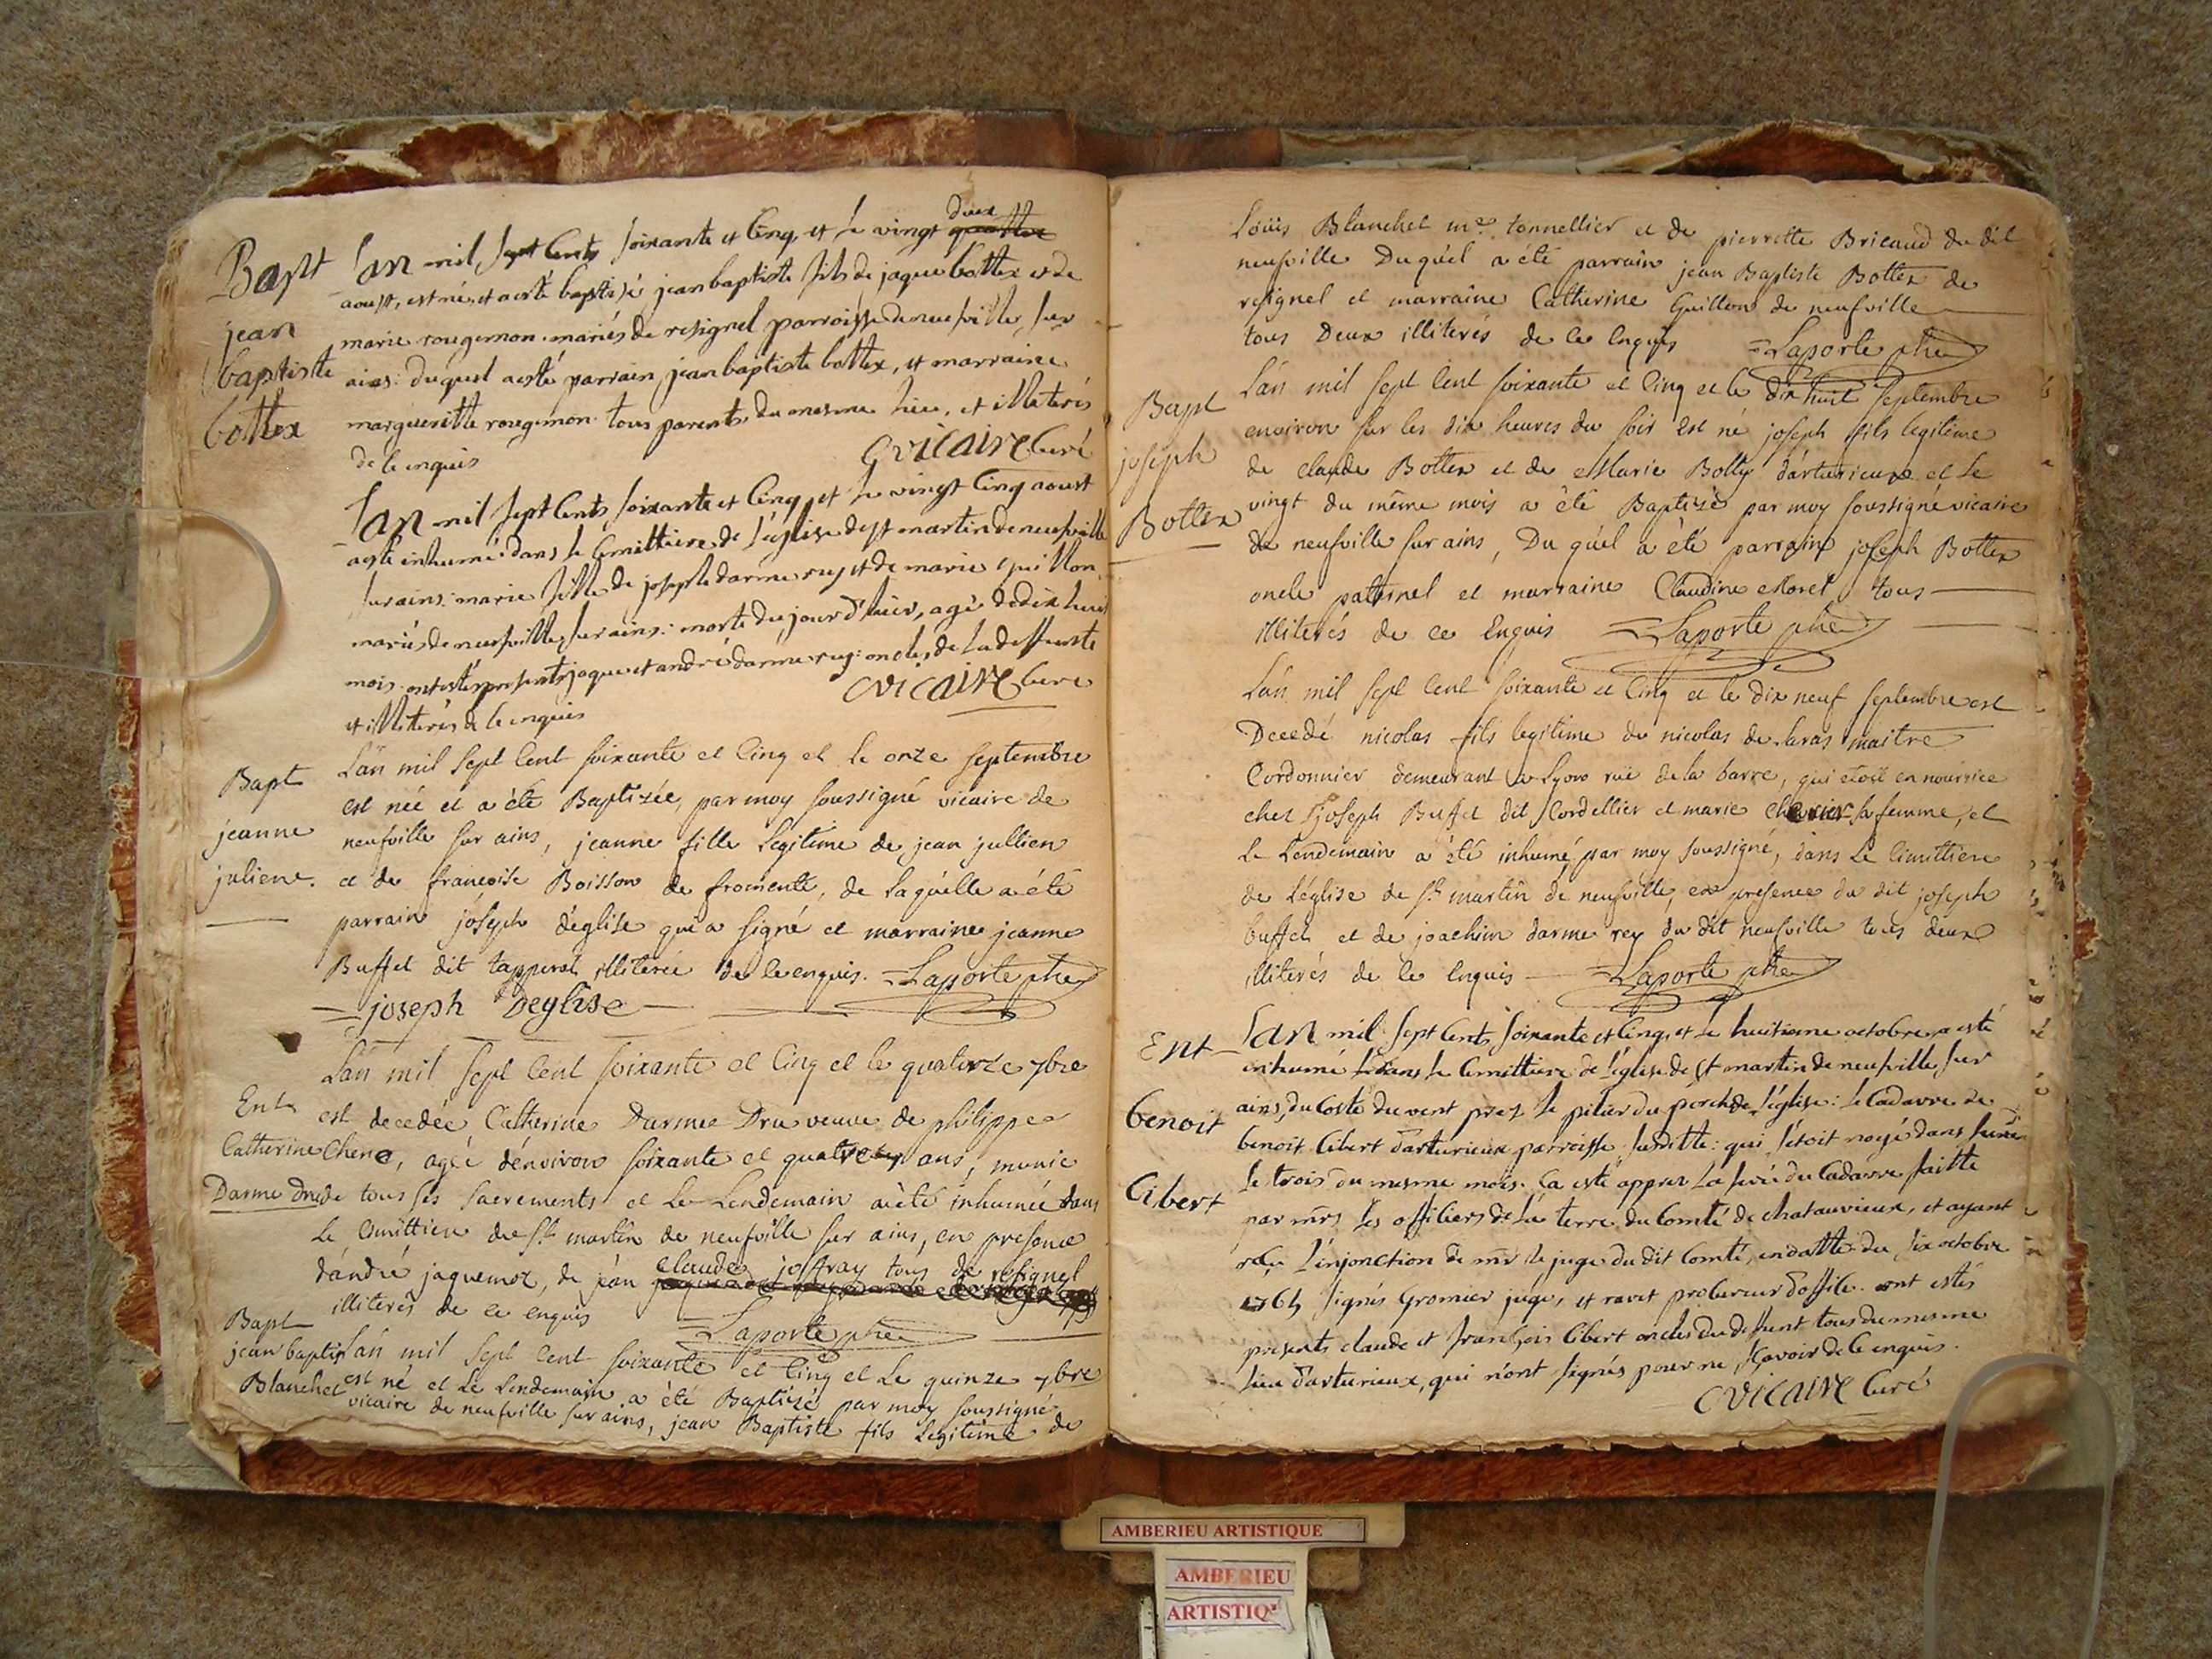 Bapt
jean
baptiste
bottex
L'an mil sept cents soixante et cinq, et le vingt deux quattre
aoust, est né, et a esté baptisé jean baptiste fils de jaque bottex et de
marie rougemon mariés de resignel parroisse de neufville sur
ains: duquel a esté parrain jean baptiste bottex, et marraine
margueritte rougemon tous parents du mesme lieu, et illiterés
de ce enquis CVICAIRE Curé
L'an mil sept cents soixante et cinq, et le vingt cinq aoust
a esté inhumé dans le cimittiere de l'église de st martin de neufville
sur ains: marie fille de joseph darmerey et de marie guillon
mariés de neufville sur ains: morte du jour d'hier, agé de dix huit
mois ont estés presents jaque et andré darmerey: oncles de la deffunte
et illiterés de ce enquis CVICAIRE Curé
Bapt
jeanne
juliene.
L'an mil sept cent soixante et cinq et le onze septembre
est née et a été Baptizée, par moy soussigné vicaire de
neufville sur ains, jeanne fille legitime de jean jullien
et de francoise Boisson de fromente, de laquelle a été
parrain joseph déglise qui a signé et marraine jeanne
Buffet dit tapperet illiterée de ce enquis. Laporte ptre
joseph Deglise
Ent
Catherine
Darme dru
L'an mil sept cent soixante et cinq et le quatorze 7bre
est decedée Catherine Darme Dru veuve de philippe
Chene, agée d'environ soixante et quatre ans, munie
de tous ses sacrements et le Lendemain a été inhumée dans
le cimittiere de St martin de neufville sur ains, en presence
d'andré jaquemot, de jean claude joffray tous de resignel
illiterés de ce enquis Laporte ptre
Bapt
jean baptiste
Blanchet
L'an mil sept cent soixante et cinq et le quinze 7bre
est né et le Lendemain a été Baptizé par moy soussigné
vicaire de neufville sur ains, jean Baptiste fils legitime de
Loüis Blanchet me. tonnellier et de pierrette Bricaud du dit
neufville Duquel a été parrain jean Baptiste Bottex de
resignel et marraine Catherine Guillon de neufville
tous Deux illiterés de ce enquis Laporte ptre
Bapt
joseph
Bottex
L'an mil sept cent soixante et cinq et le dix huit septembre
environ sur les dix heures du soir est né joseph fils legitime
de claude Bottex et de Marie Bolly d'arturieux et le
vingt du même mois a été Baptizé par moy soussigné vicaire
de neufville sur ains, Du quel a été parrain joseph Bottex
oncle paternel et marraine Claudine Morel tous
illiterés de ce enquis Laporte ptre
L'an mil sept cent soixante et cinq et le dix neuf septembre est
Decedé nicolas fils legitime de nicolas de laras maitre
Cordonnier demeurant a Lyon rüe de la barre, qui etoit en nourrice
chez joseph Buffet dit Cordellier et marie sa femme, et
le Lendemain a été inhumé par moy soussigné, dans le cimittiere
de l'église de St martin de neufville, en presence du dit joseph
buffet et de joachim darmerey du dit neufville tous deux
illiterés de ce enquis Laporte ptre
Ent
benoit
Cibert
L'an mil sept cents soixante et cinq, et le huitieme octobre a esté
inhumé dans le cimittiere de l'église de St martin de neufville sur
ains, du costé du vent prez le pilier du porche de l'église: le Cadavre de
benoit Cibert d'arturieux parroisse susditte: qui s'étoit noyé dans
le trois du mesme mois. Ca esté apprez la levée du Cadavre faitte
par mrs les officiers de la terre du Comté de chatauvieux, et ayant
l'injonction de mr le juge du dit Comté, en datte du six octobre
1765 signés Gromier juge, et ravet procureur d'office. ont estés
presents claude et françois Cibert oncles du deffunt tous du mesme
lieu d'arturieux, qui n'ont signés pour ne sçavoir de ce enquis.
CVICAIRE Curé
AMBERIEU ARTISTIQUE
AMBERIEU
ARTISTIQ